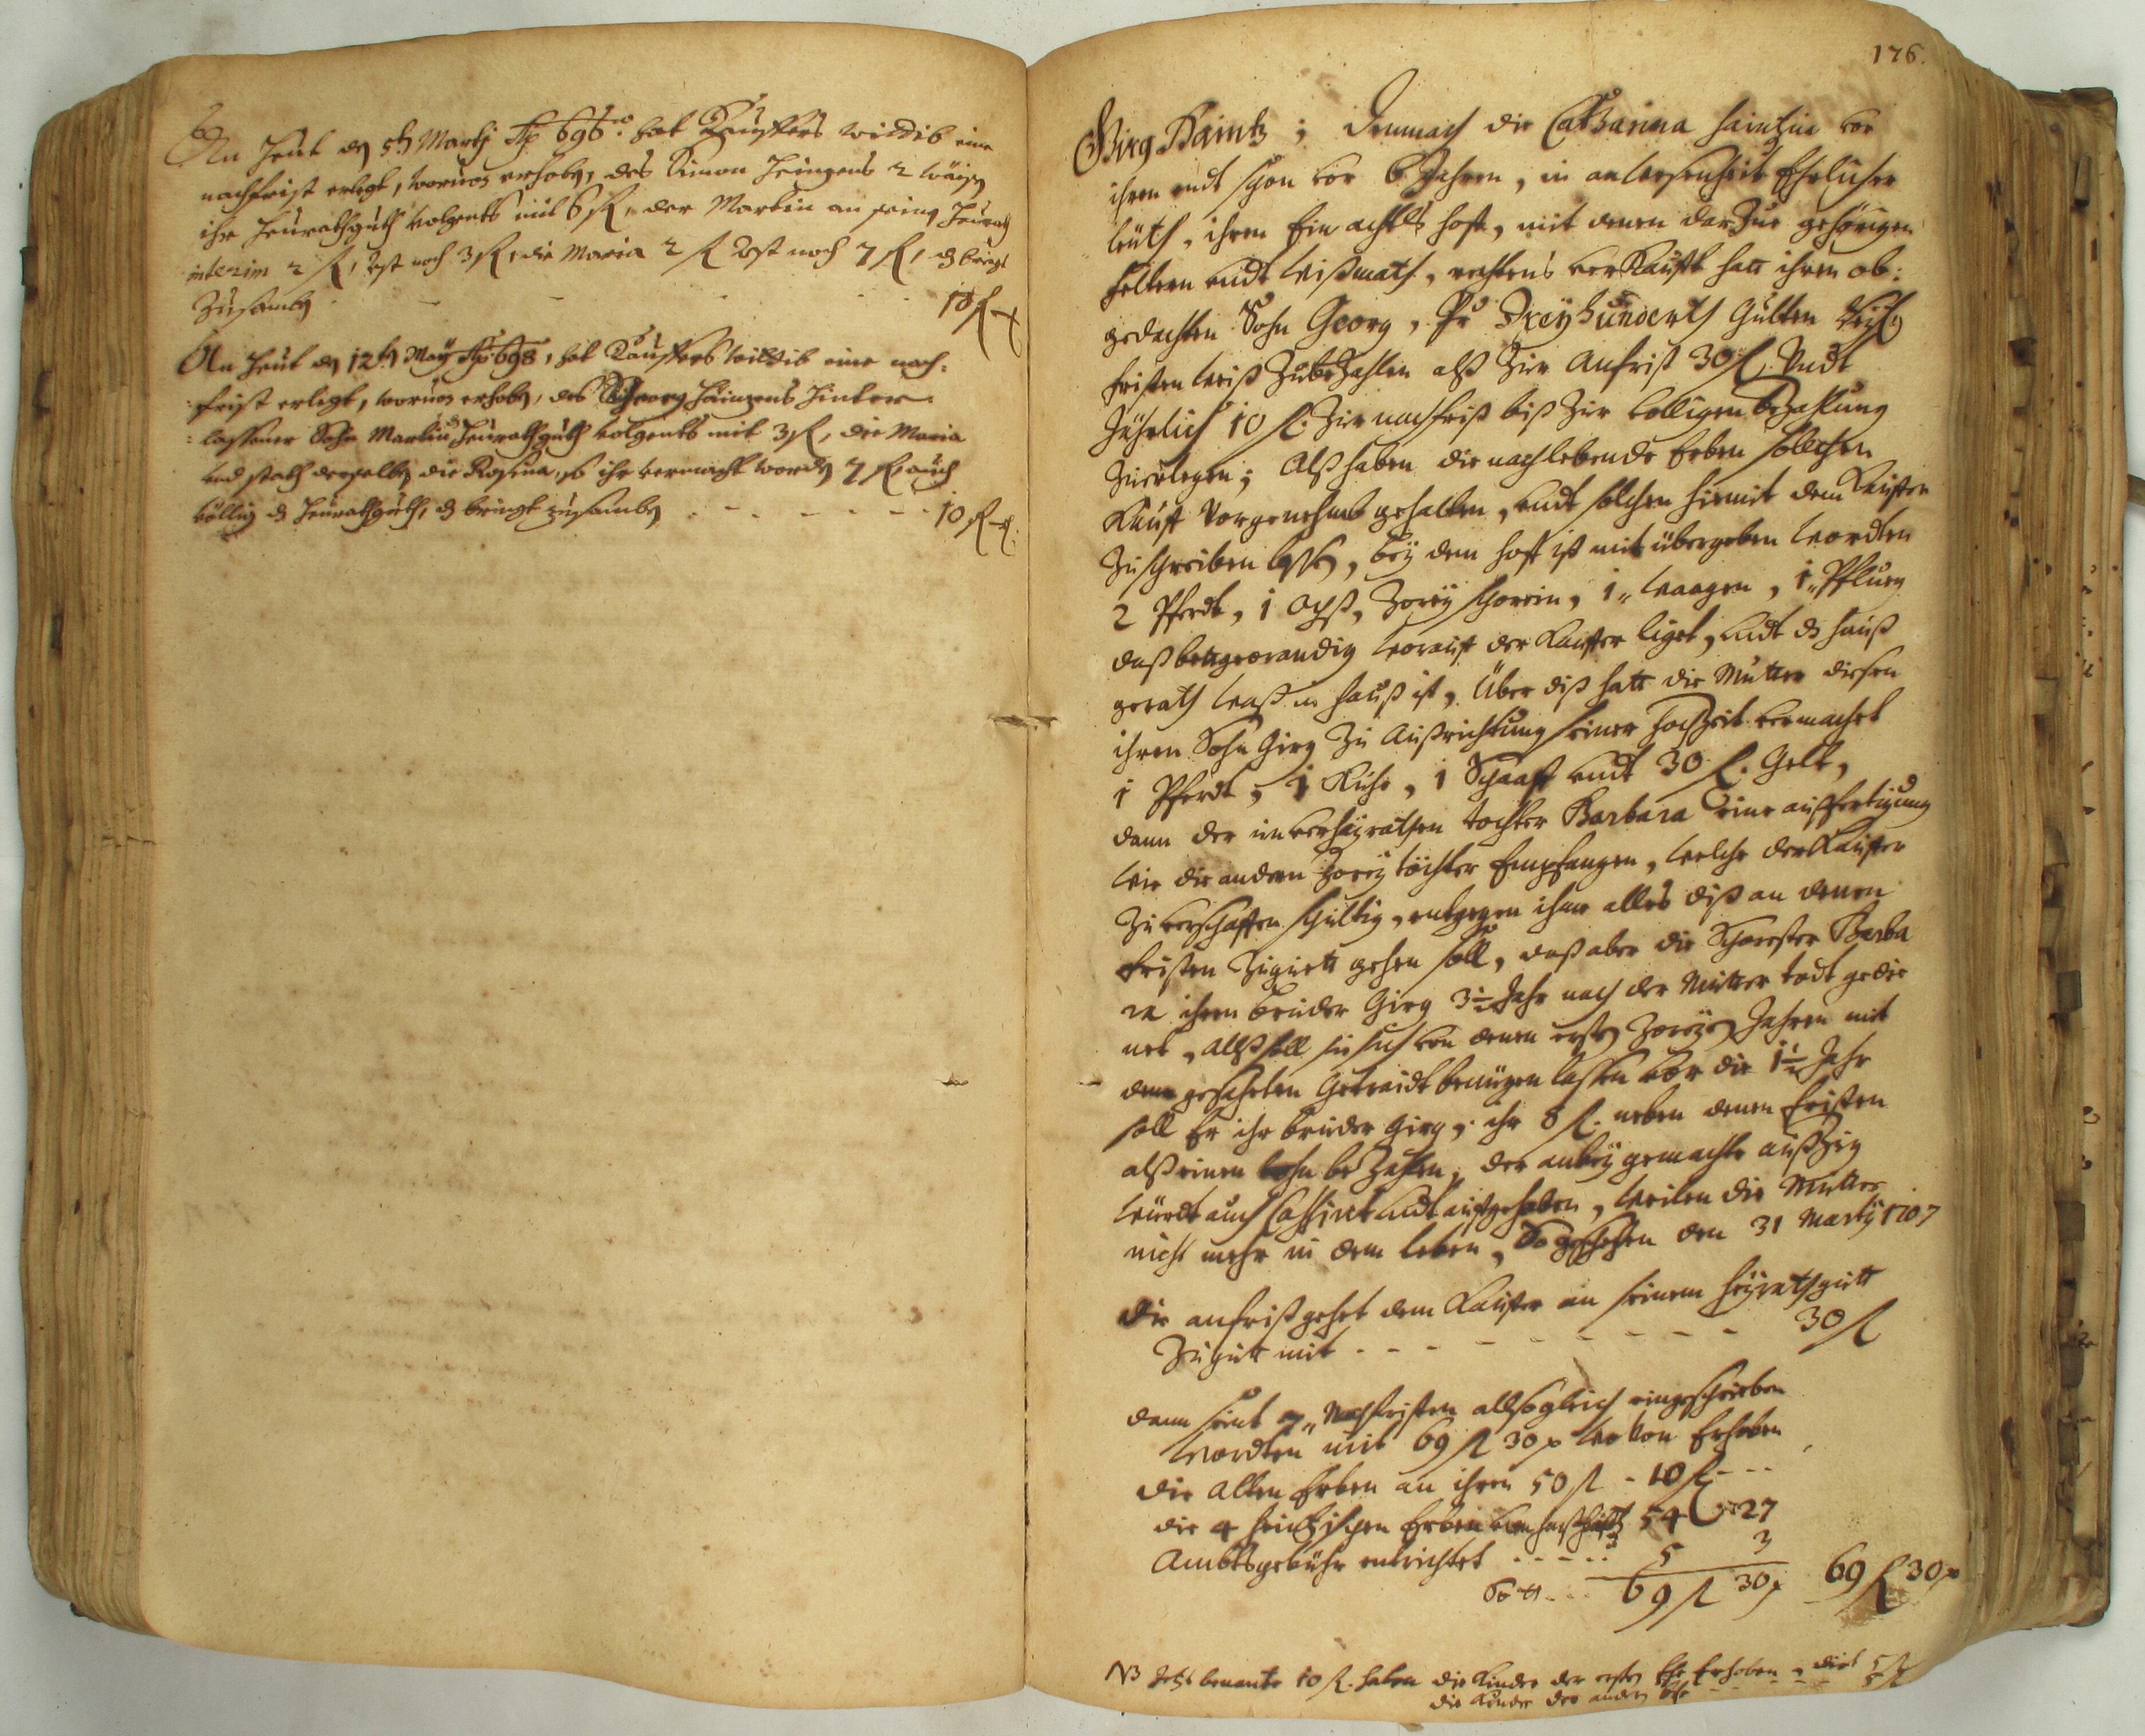 An Heut den 5t Martij Ao 696to hat Kauffers Wittib eine
nachfrist erlegt, worvon erhoben, des Simon Heinzens 2 Waisen
ihr Heurathguth volgents mit 6 fl, der Martin an seinem Heurath
interim 2 fl, Rst noch 3 fl, die Maria 2 fl Rst noch 7 fl, ds bringt
Zusamben 10 fl
An Heut den 12ten Maij Ao 698, hat Kauffers Wittib eine nach-
frist erlegt, worvon erhoben, des Heinzens hinter-
lassener Sohn Martin Heurathguth volgents mit 3 fl, die Maria
und stath derselben die Rosina, so ihr vermacht worden 7 fl auch
völlig ds Heurathguth, ds bringt zusamben - - - - - 10 fl
176.
Girg Haintz; Demnach die Catharina Haintzin vor
ihrem endt schon vor 6 Jahren, in anwesenheit Ehrlicher
leüth, ihren Ein achtls hoff, mit denen darzue gehörigen
feldern undt Wißmath, rechtens verkaufft hatt ihren ob:
gedachten Sohn Georg, Pr Dreyhunderth Gulten
fristen weiß zubezahlen alß Zur Anfrist 30 fl. Undt
Jährlich 10 fl. Zur nachfrist biß Zur völligen bezahlung
Zuerlegen; Alß haben die nachlebende Erben solchen
Kauff Vorgenehmb gehalten, undt solchen hiemit dem Kauffer
Zuschreiben lassen, beÿ dem hoff ist mit übergeben wordten
2 Pferdt, 1 Ochß, Zweÿ schwein, 1 waagen, 1 Pflueg
daß bettgewandig worauf der Kauffer liget, undt ds hauß
gerath waß in hauß ist, Über diß hatt die Mutter diesen
ihren Sohn Girg Zu Außrichtung seiner Hochzeit vermachet
1 Pferdt, 1 Kuhe, 1 Schaaff undt 30 fl. Gelt,
dann der unverheÿrathen tochter Barbara eine außfertigung
wie die andern Zweÿ töchter Empfangen, welche der Kauffer
Zu verschaffen schultig, entgegen ihme alles diß an denen
fristen Zuguett gehen soll, daß aber die Schwester Barba
ra ihrem bruder Girg 3½ Jahr nach der Mutter todt gedie
net, alß soll sie sich von denen ersten Zweÿen Jahren mit
dem gesäheten Getraidt benügen lassen vor die 1½ Jahr
soll Er ihr bruder Girg, ihr 8 fl. neben denen fristen
alß einen lohn bezahlen, der anbeÿ gemachte außzug
würdt auch Cassirt undt aufgehoben, weilen die Mutter
nicht mehr in dem leben, So geschehen den 31 Martÿ 1707
Die anfrist gehet dem Kauffer an seinem Heÿrathguett
Zugutt mit - - - - - - - 30 fl
dann seint 7 Nachfristen allsogleich eingeschrieben
wordten mit 69 fl 30 x wovon Erhoben
die alten Erben an ihren 50 fl - 10 fl - - -
die 4 heintzischen Erben 54 27
Ambtsgebühr entrichtet - - - - - 5 3
69 fl 30 x 69 fl 30 x
NB Jetzt benante 10 fl. haben die Kinder der ersten Ehe Erhoben, dict 5 fl
die Kinder der andern Ehe - - - - 5 fl